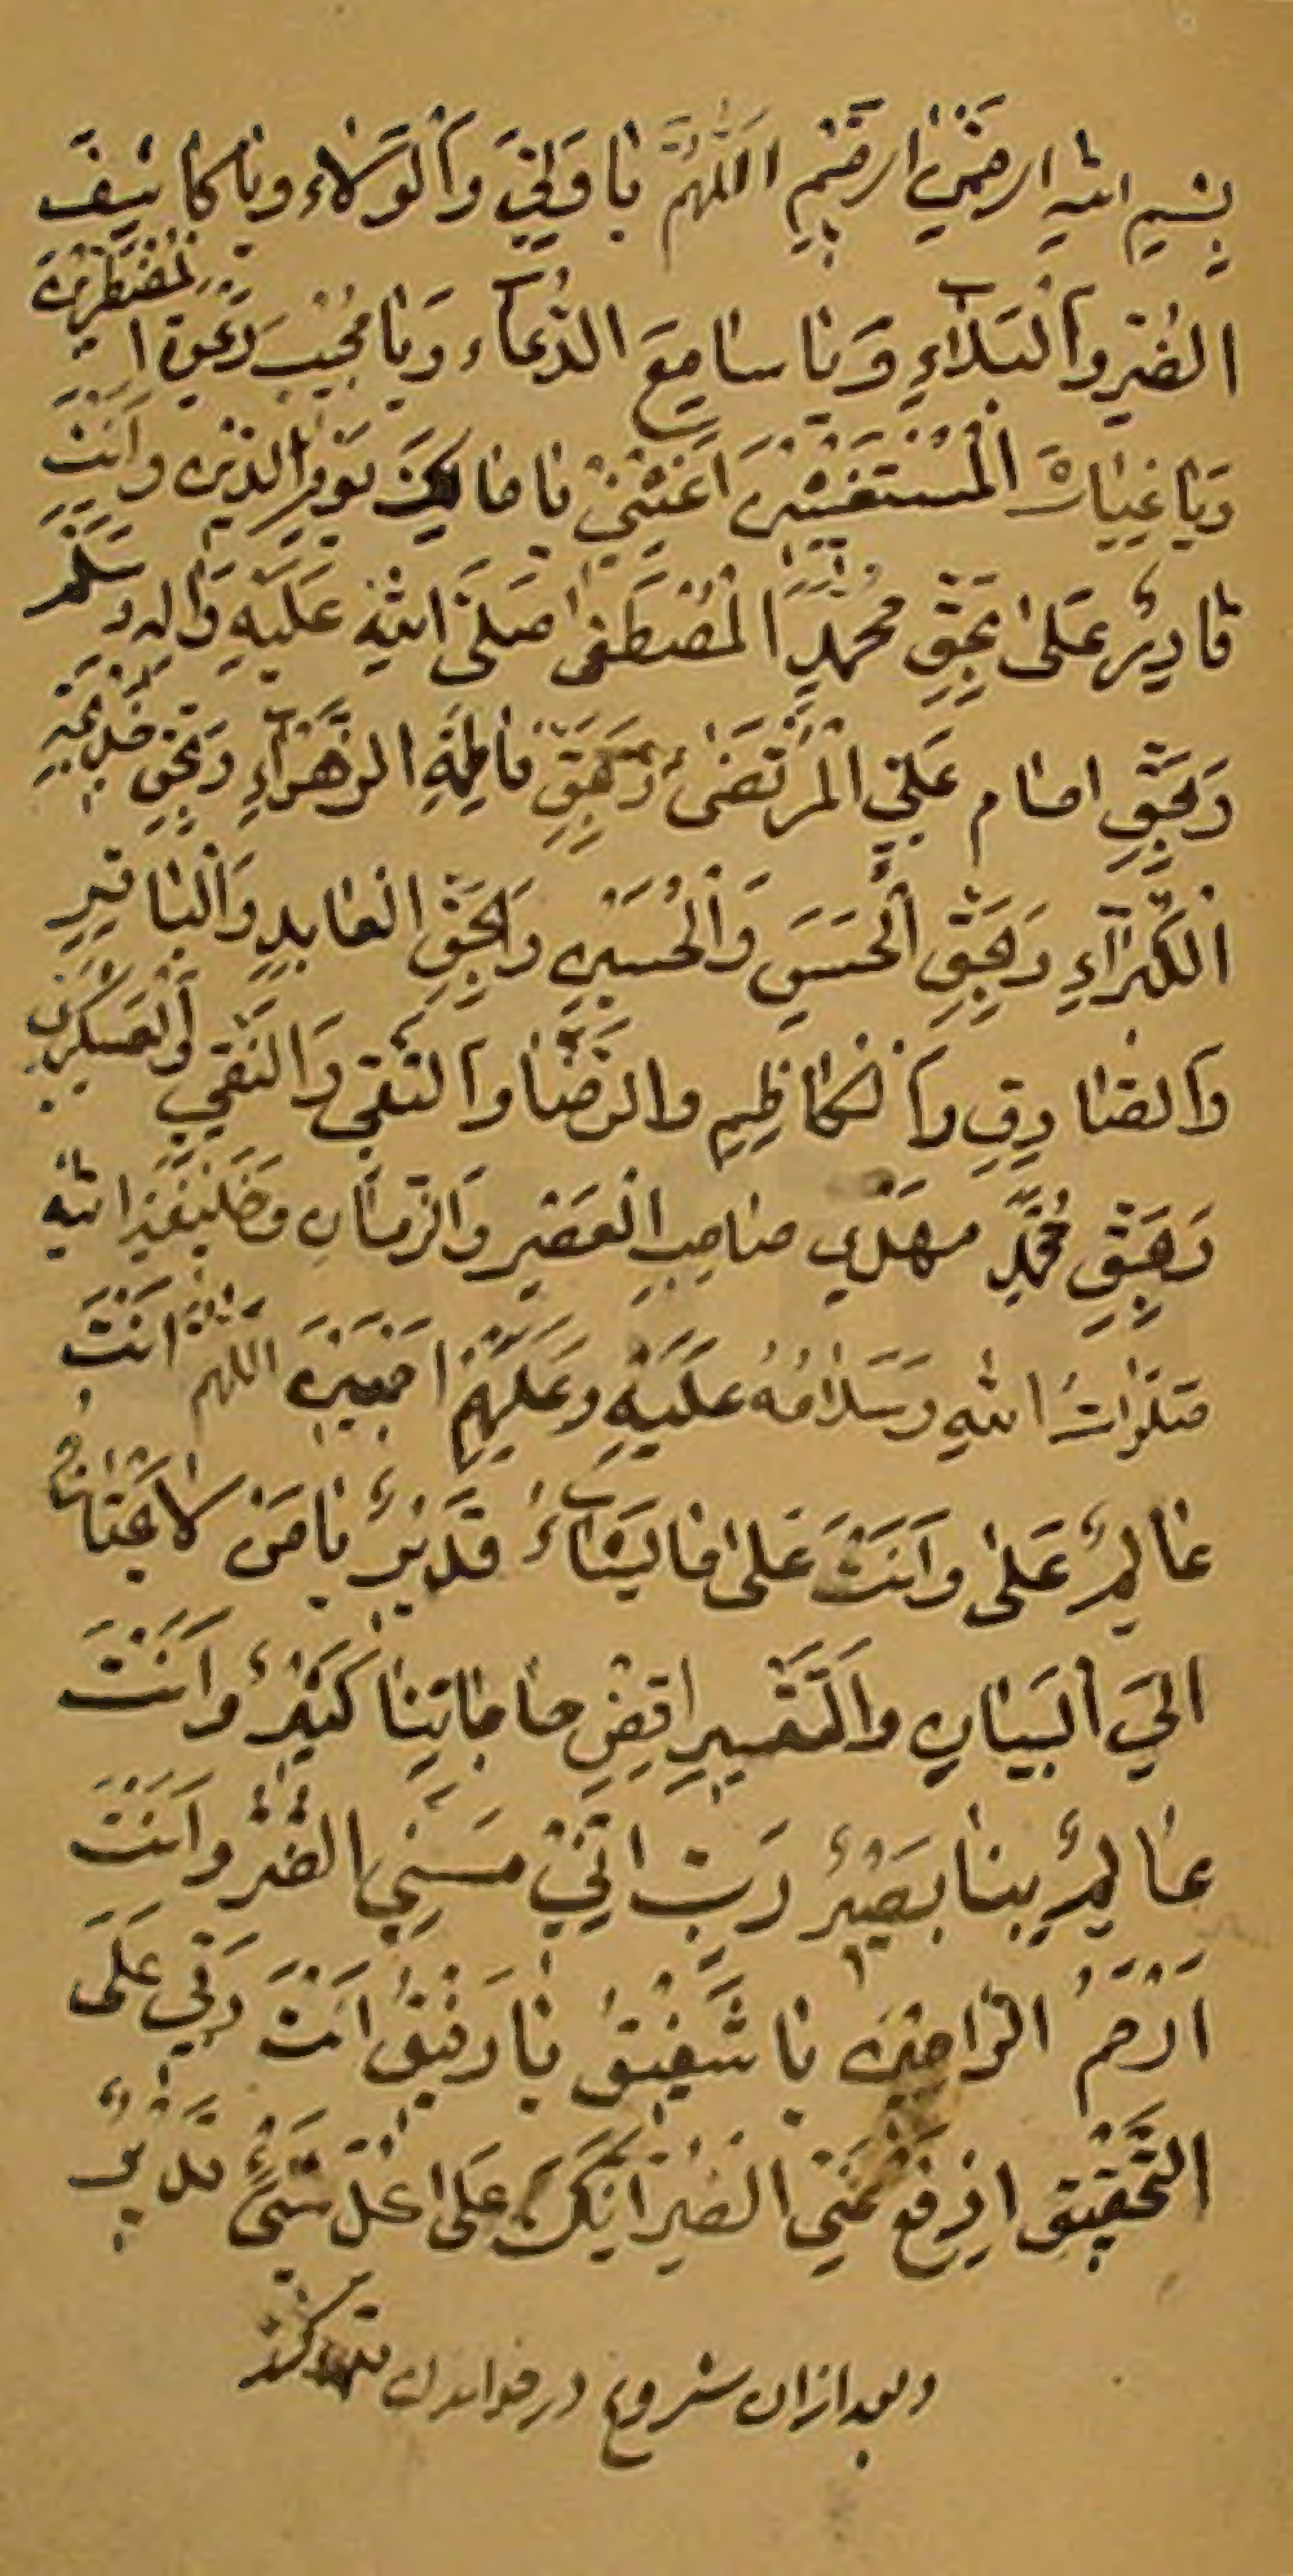 بِسْمِ اللهِ الرحمٰنِ الرحیمِ اَللّٰهُمَّ یَا وَلِیَّ وَالْوَلَاءِ وَیَا کَاشِفَ
الضُّرِّ وَالْبَلَاءِ وَیَا سَامِعَ الدُّعَاءِ وَیَا مُجِیْبَ دَعْوَةِ الْمُضْطَرِّیْنَ
وَیَا غِیَاثَ الْمُسْتَغِیْثِیْنَ اَغِثْنِیْ یَا مَالِکَ یَوْمِ الدِّیْنِ وَاَنْتَ
قَادِرٌ عَلیٰ بِحَقِّ مُحَمَّدٍ الْمُصْطَفیٰ صَلَّی اللهُ عَلَیْهِ وَاٰلِهِ وَسَلَّمَ
وَبِحَقِّ امام عَلِیِّ الْمُرْتَضیٰ وَبِحَقِّ فَاطِمَةِ الزَّهْرَاءِ وَبِحَقِّ خَدِیْجَةِ
الْکُبْرَاءِ وَبِحَقِّ الْحَسَنِ وَالْحُسَیْنِ وَبِحَقِّ الْعَابِدِ وَالْبَاقِرِ
وَالصَّادِقِ وَالْکَاظِمِ وَالرِّضَا وَالتَّقِیِ وَالنَّقِیِ وَالْعَسْکَرِیِ
وَبِحَقِّ مُحَمَّدِ مَهْدِی صَاحِبِ الْعَصْرِ وَالزَّمَانِ وَخَلِیْفَةِ اللهِ
صَلَوٰاتُ اللهِ وَسَلَامُهُ عَلَیْهِ وَعَلَیْهِمْ اَجْمَعِیْنَ اَللّٰهُمَّ اَنْتَ
عَالِمٌ عَلیٰ وَاَنْتَ عَلیٰ مَا یَشَاءُ قَدِیْرٌ یَا مَنْ لَا
اِلَی الْبَیَانِ وَالتَّفْسِیْرِ اقْضِ حَاجَاتِنَا کَثِیْرٌ وَاَنْتَ
عَالِمٌ بِنَا بَصِیْرٌ رَبِّ اِنِّیْ مَسَّنِیَ الضُّرُّ وَاَنْتَ
اَرْحَمُ الرَّاحِمِیْنَ یَا شَفِیْقُ یَا رَفِیْقُ اَنْتَ رَبِّی عَلَی
التَّحْقِیْقِ اِدْفَعْ عَنِّی الضُّرَّ اِنَّکَ عَلیٰ کُلِّ شَیْءٍ قَدِیْرٌ
وبعد ازان شروع در خواندن کند